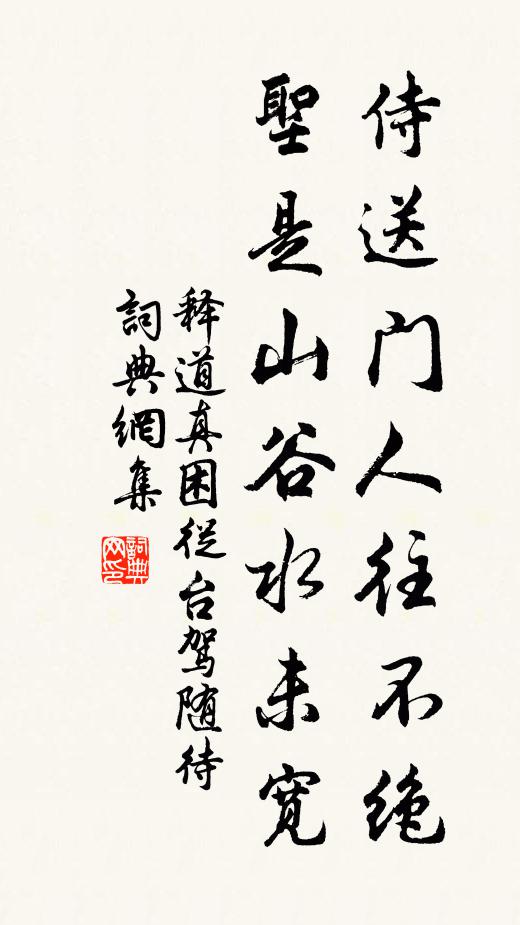 侍送门人往不绝
聖是山谷水未寛
释道真困從台驾随待
詞典網集
詞典网印